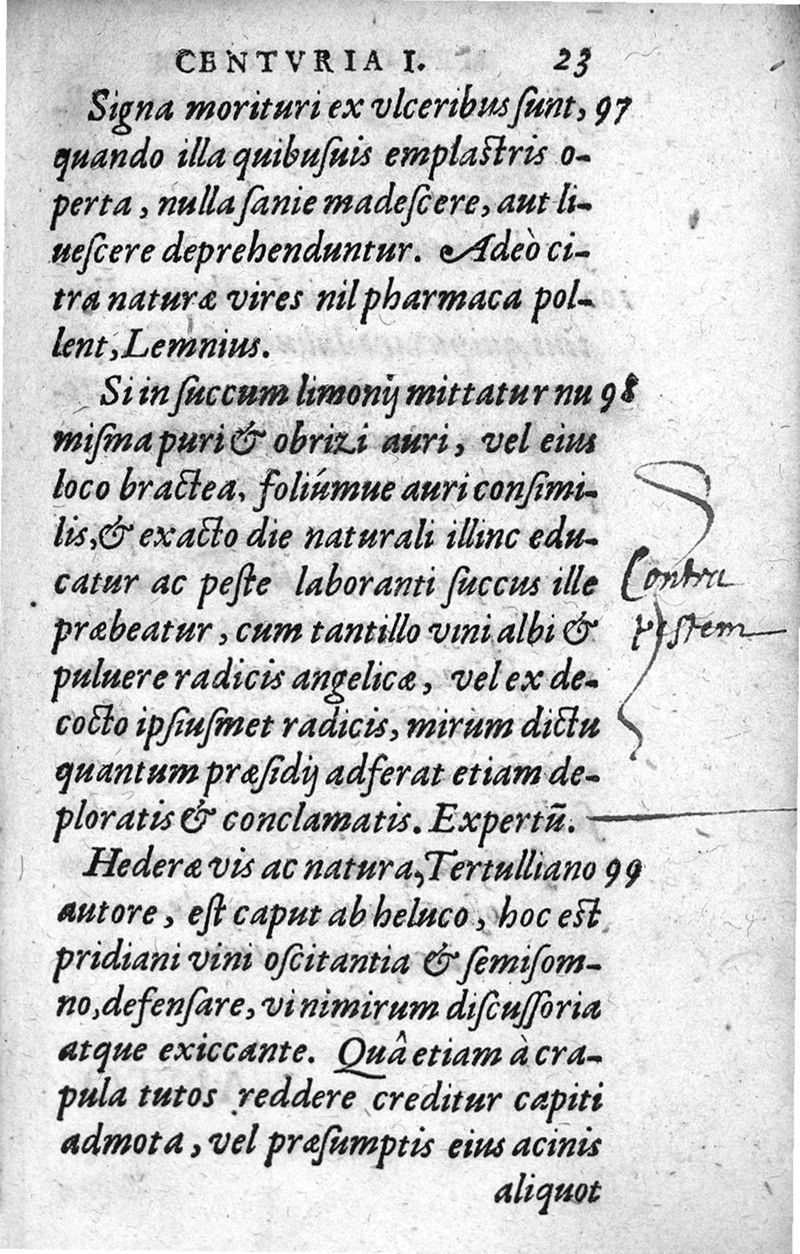 CENTVRIA I. 23
Signa morituri ex vlceribus ſunt, 97
quando illa quibuſuis emplastris o-
perta, nulla ſanie madeſcere, aut li-
ueſcere deprehenduntur. Adeò ci-
tra naturæ vires nil pharmaca pol-
lent, Lemnius.
Si in ſuccum limonij mittatur nu 98
miſma puri & obrizi auri, vel eius
loco bractea, foliúmue auri conſimi-
lis, & exacto die naturali illinc edu-
catur ac peſte laboranti ſuccus ille
Contra
præbeatur, cum tantillo vini albi &
pestem
puluere radicis angelicæ, vel ex de-
cocto ipſiuſmet radicis, mirum dictu
quantum præſidij adferat etiam de-
ploratis & conclamatis. Expertū.
Hederæ vis ac natura, Tertulliano 99
autore, eſt caput ab heluco, hoc est
pridiani vini oſcitantia & ſemiſom-
no, defenſare, vi nimirum diſcuſſoria
atque exiccante. Quâ etiam à cra-
pula tutos reddere creditur capiti
admota, vel præſumptis eius acinis
aliquot